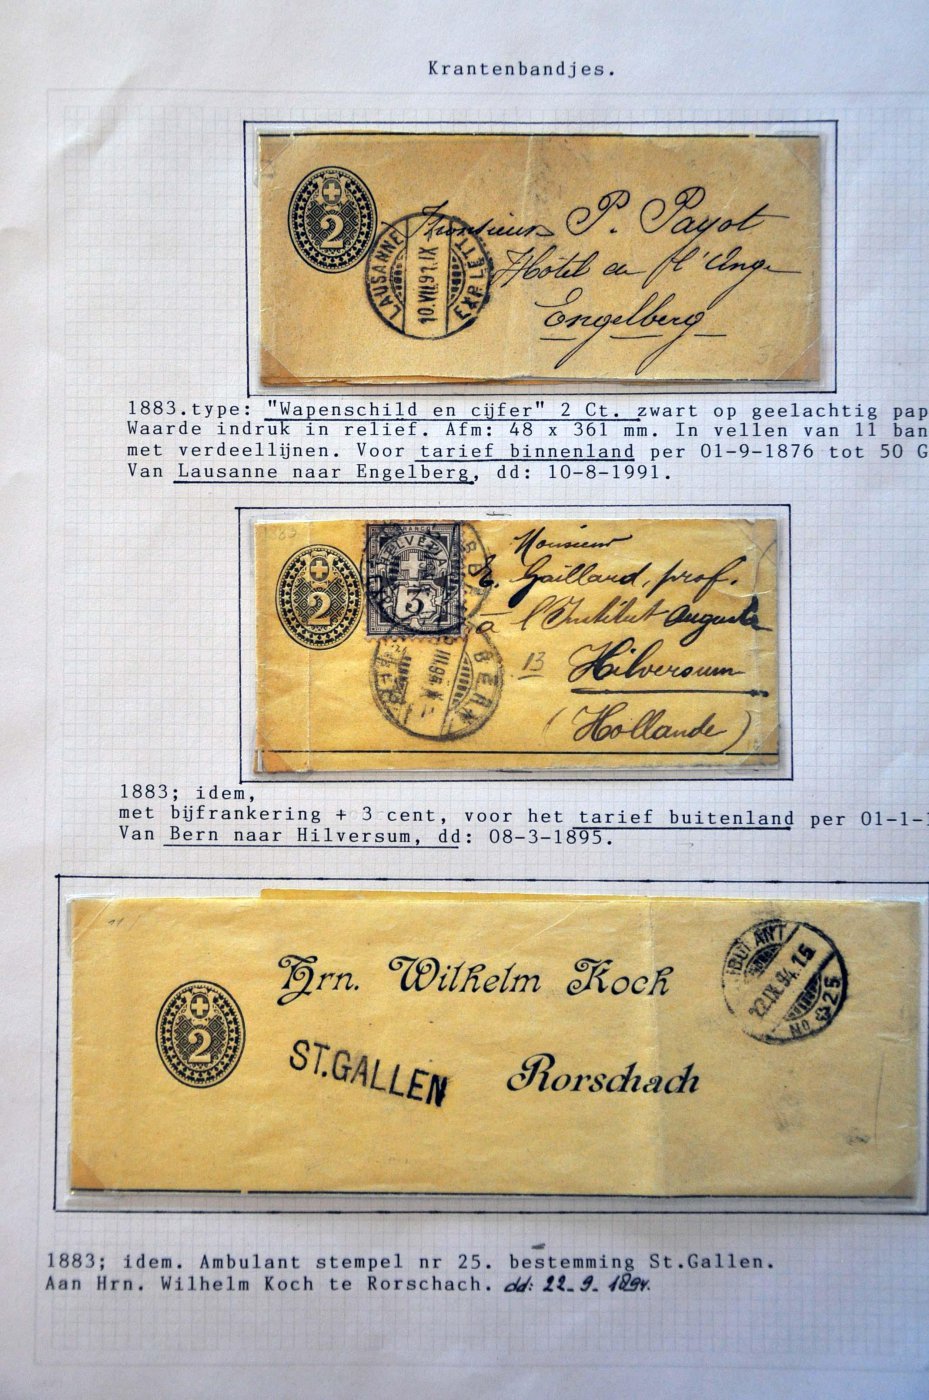 Krantenbandjes.
2
LAUSANNE
10.VII.91.IX
EXP. LETT
Monsieur P. Payot
Hôtel de l'Ange
Engelberg
1883.type: "Wapenschild en cijfer" 2 Ct. zwart op geelachtig pap
Waarde indruk in relief. Afm: 48 x 361 mm. In vellen van 11 ban
met verdeellijnen. Voor tarief binnenland per 01-9-1876 tot 50 G
Van Lausanne naar Engelberg, dd: 10-8-1991.
1883
2
FRANCO
HELVETIA
3
BERN
III.95.X-1
Monsieur
Gaillard, prof.
à l'Institut Auguste
13
Hilversum
(Hollande)
1883; idem,
met bijfrankering + 3 cent, voor het tarief buitenland per 01-1-1
Van Bern naar Hilversum, dd: 08-3-1895.
11
2
Hrn. Wilhelm Koch
ST.GALLEN
Rorschach
AMBULANT
22.IX.94.15
No 25
1883; idem. Ambulant stempel nr 25. bestemming St.Gallen.
Aan Hrn. Wilhelm Koch te Rorschach. dd: 22-9-1894.